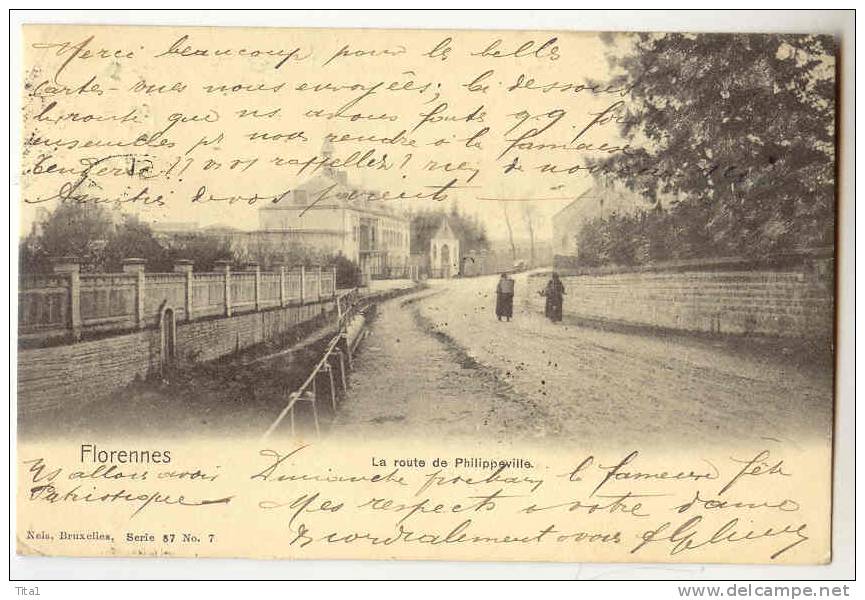 Merci beaucoup pour les belles
cartes-vues que nous envoyées; ci dessous
la route que ns avons faite qq fois
ensembles pr nous rendre à la fameuse
vs rappellez? rien de nouveau ici
de vos parents
Florennes
La route de Philippeville.
Ns allons avoir Dimanche prochain la fameuse fête
Patriotique
Mes respects à votre dame
& cordialement à vous
Nels, Bruxelles, Serie 87 No. 7
Tita1
delcampe.be